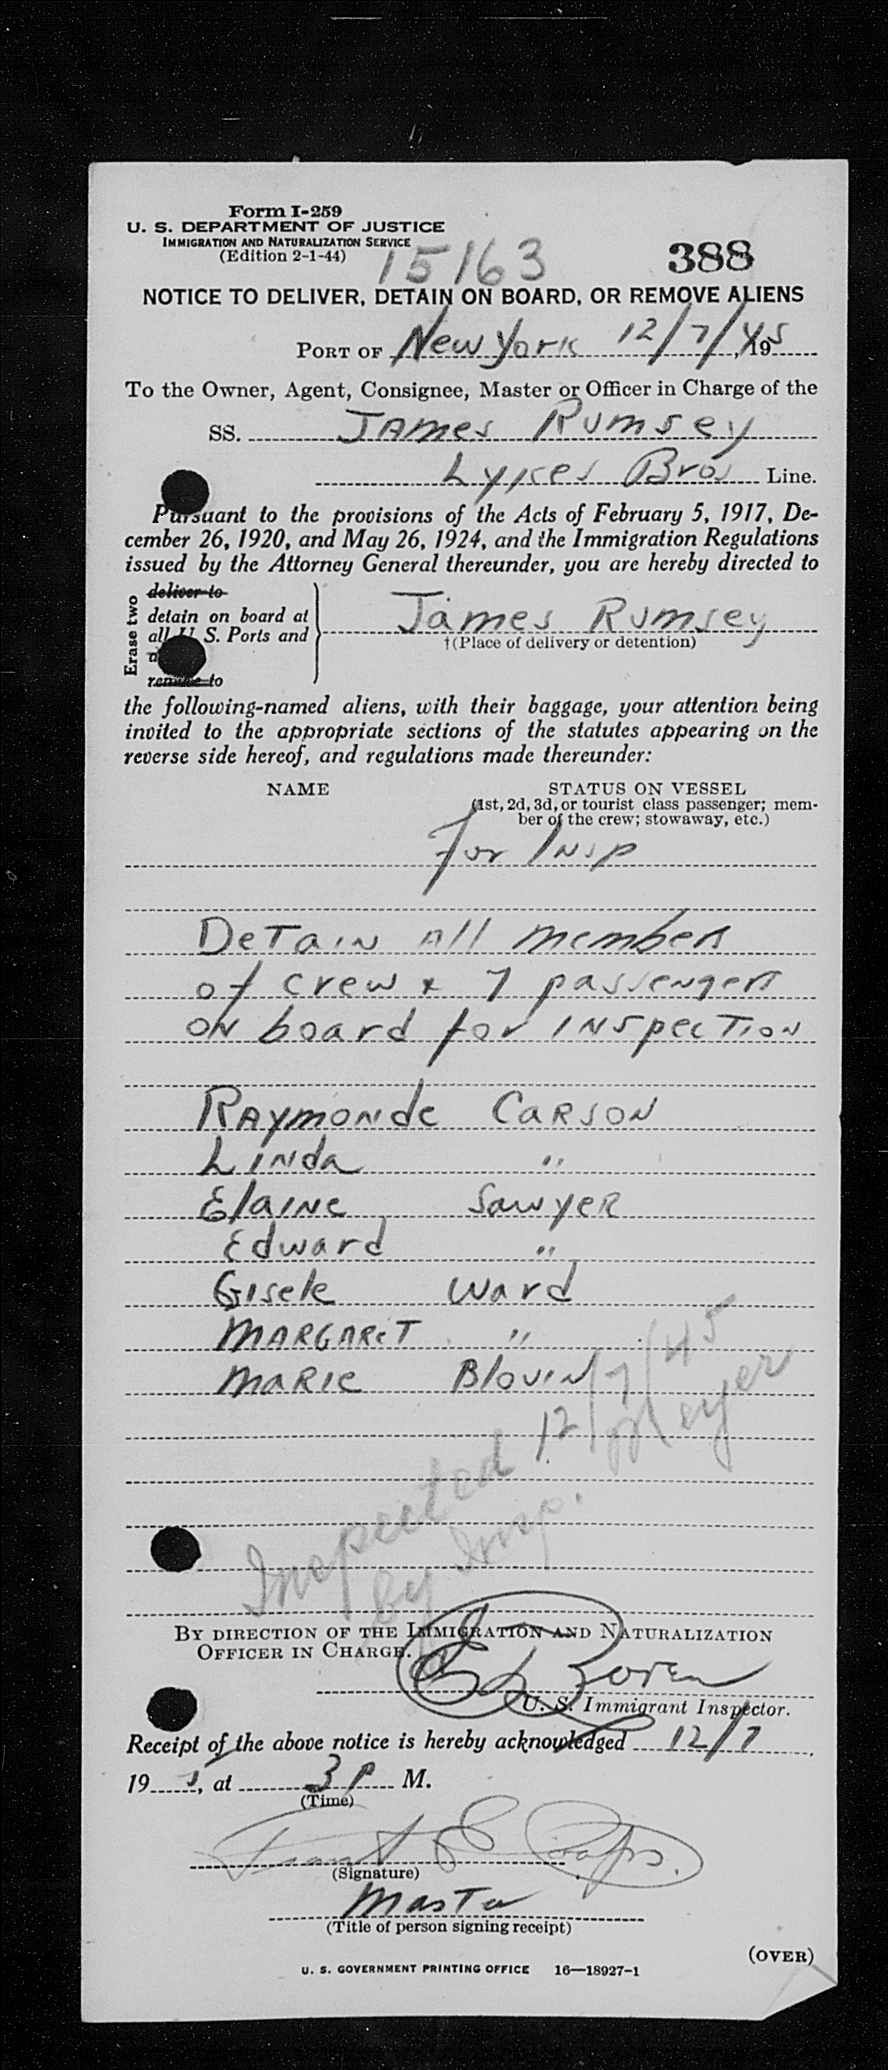 Form I-259
U. S. DEPARTMENT OF JUSTICE
IMMIGRATION AND NATURALIZATION SERVICE
(Edition 2-1-44)
15163
388
NOTICE TO DELIVER, DETAIN ON BOARD, OR REMOVE ALIENS
PORT OF New York 12/7/45, 19
To the Owner, Agent, Consignee, Master or Officer in Charge of the
SS. James Rumsey
Lykes Bros Line.
Pursuant to the provisions of the Acts of February 5, 1917, De-
cember 26, 1920, and May 26, 1924, and the Immigration Regulations
issued by the Attorney General thereunder, you are hereby directed to
Erase two
deliver to
detain on board at
all U. S. Ports and
remove to
James Rumsey
†(Place of delivery or detention)
the following-named aliens, with their baggage, your attention being
invited to the appropriate sections of the statutes appearing on the
reverse side hereof, and regulations made thereunder:
NAME STATUS ON VESSEL
(1st, 2d, 3d, or tourist class passenger; mem-
ber of the crew; stowaway, etc.)
For Insp
Detain all members
of crew & 7 passengers
on board for inspection
Raymonde Carson
Linda "
Elaine Sawyer
Edward "
Gisele Ward
Margaret "
Marie Blouin
Inspected 12/7/45
by Insp. Meyer
BY DIRECTION OF THE IMMIGRATION AND NATURALIZATION
OFFICER IN CHARGE.
U. S. Immigrant Inspector.
Receipt of the above notice is hereby acknowledged 12/7,
19 5, at 3 P M.
(Time)
(Signature)
Master
(Title of person signing receipt)
(OVER)
U. S. GOVERNMENT PRINTING OFFICE 16—18927-1